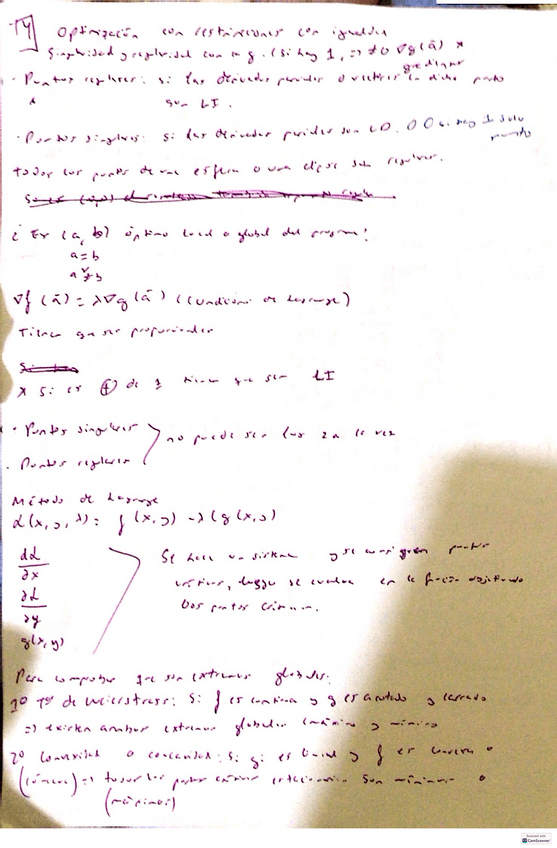 T4 Optimización con restricciones con igualdad
Singularidad y regularidad con g. (Si hay 1, => ≠0 ∇g(ā) *
· Puntos regulares: si las derivadas parciales o vectores en dicho punto
son LI.
· Puntos singulares: si las derivadas parciales son LD. O 0 si hay 1 solo
punto
todos los puntos de una esfera o una elipse son regulares.
¿ Es (a, b) óptimo local o global del programa?
a = b
a ≠ b
∇f (ā) = λ∇g(ā) (Condición de Lagrange)
Tienen que ser proporcionales
* Si es ⊕ de 1 tienen que ser LI
· Puntos singulares
no puede ser las 2 a la vez
· Puntos regulares
Método de Lagrange
L(x, y, λ) = f(x, y) - λ(g(x, y)
∂L
∂x
∂L
∂y
g(x, y)
Se hace un sistema y se consiguen puntos
críticos, luego se evalúa en la función objetivo
los puntos críticos.
Para comprobar que son extremos globales:
1º Tª de Weierstrass: Si f es continua y g es acotado y cerrado
=> existen ambos extremos globales (máximo y mínimo
2º Convexidad o concavidad: Si g es lineal y f es convexa o
(cóncava) => todos los puntos son mínimos o
(máximos)
Scanned with
CamScanner